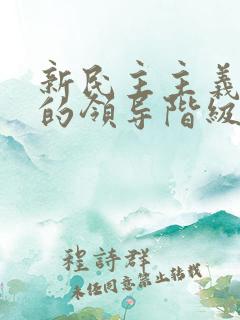 新民主主義
的領导階級
程詩群
未经同意禁止转载